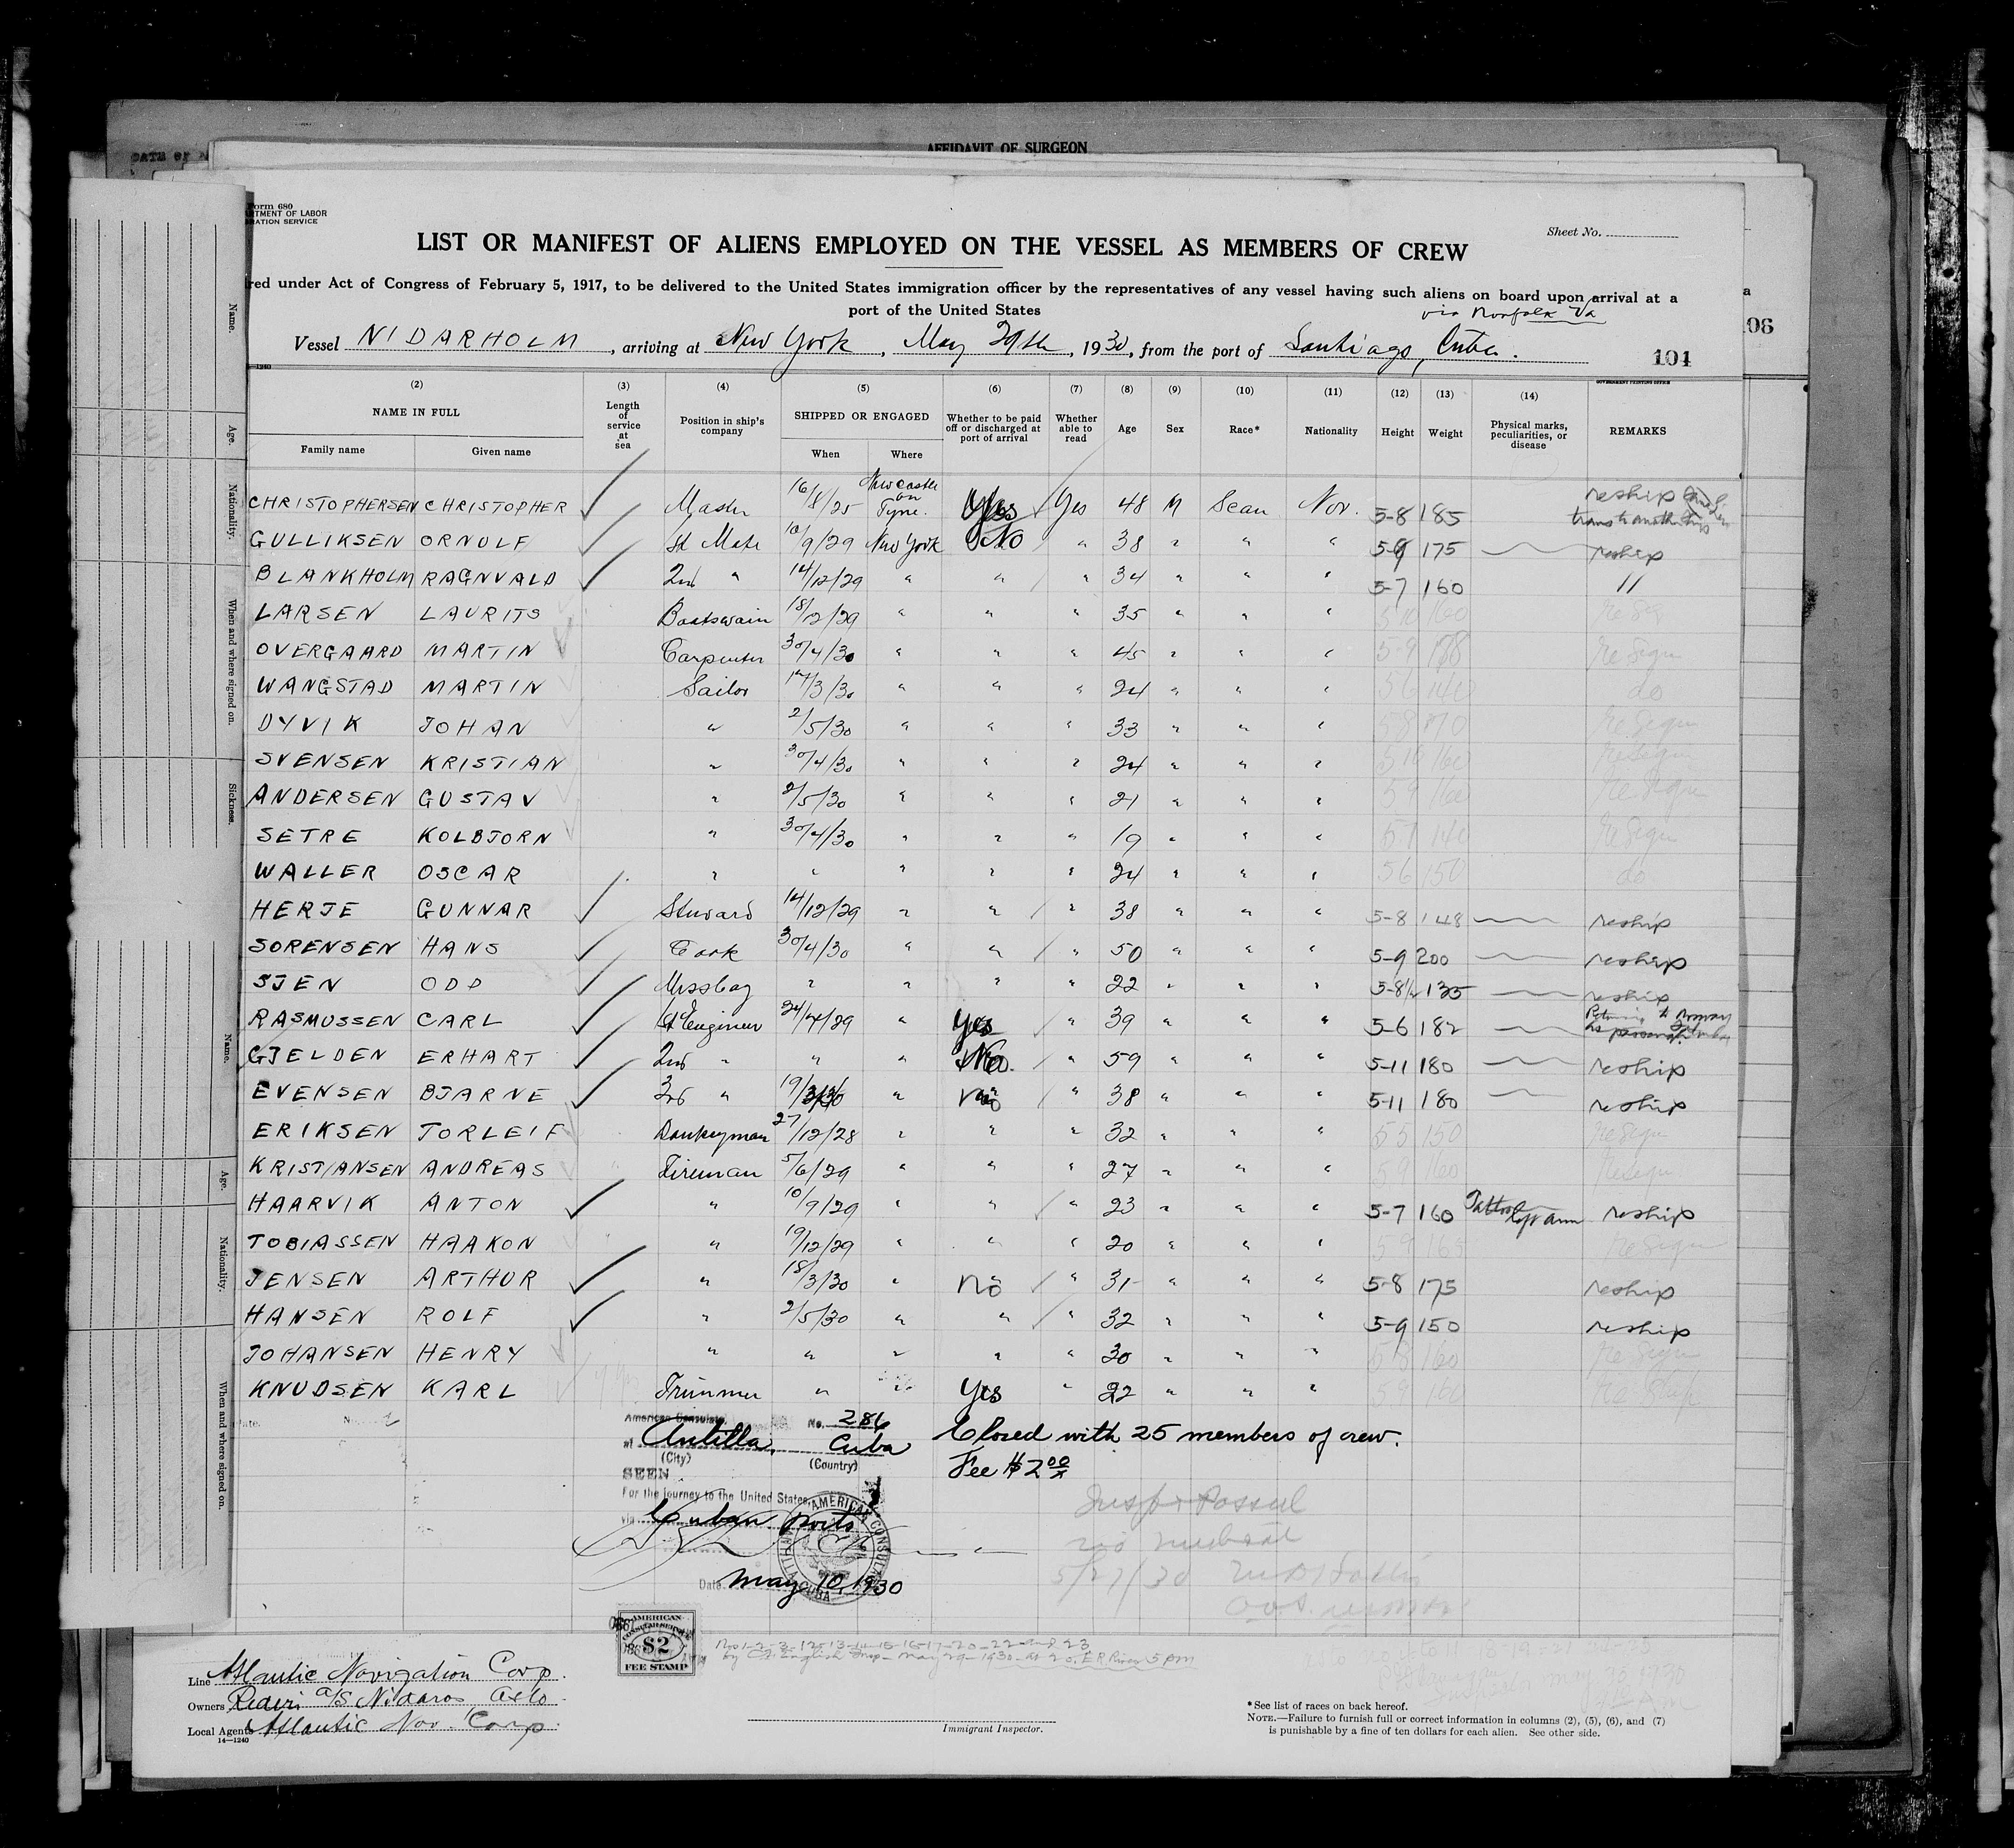 DATE OF
AFFIDAVIT OF SURGEON
Form 680
RTMENT OF LABOR
RATION SERVICE
Sheet No.
LIST OR MANIFEST OF ALIENS EMPLOYED ON THE VESSEL AS MEMBERS OF CREW
red under Act of Congress of February 5, 1917, to be delivered to the United States immigration officer by the representatives of any vessel having such aliens on board upon arrival at a
port of the United States
via Norfolk Va
Vessel NIDARHOLM, arriving at New York, May 29th, 1930, from the port of Santiago, Cuba.
06
104
(2) (3) (4) (5) (6) (7) (8) (9) (10) (11) (12) (13) (14)
NAME IN FULL Length of service at sea Position in ship's company SHIPPED OR ENGAGED Whether to be paid off or discharged at port of arrival Whether able to read Age Sex Race* Nationality Height Weight Physical marks, peculiarities, or disease REMARKS
Family name Given name When Where
CHRISTOPHERSEN CHRISTOPHER Master 16/8/25 Newcastle on Tyne. Yes Yes 48 M Scan Nor. 5-8 185 reship
GULLIKSEN ORNULF 1st Mate 10/9/29 New York No " 38 " " " 5-9 175 reship
BLANKHOLM RAGNVALD 2nd " 14/12/29 " " " 34 " " " 5-7 160 "
LARSEN LAURITS Boatswain 18/12/29 " " " 35 " " " 5 10 160
OVERGAARD MARTIN Carpenter 30/4/30 " " " 45 " " " 5-9 188 re Sign
WANGSTAD MARTIN Sailor 14/3/30 " " " 24 " " " 5 6 140 do
DYVIK JOHAN " 2/5/30 " " " 33 " " " 5 8 170 re Sign
SVENSEN KRISTIAN " 30/4/30 " " " 24 " " " 5 10 160 re Sign
ANDERSEN GUSTAV " 2/5/30 " " " 21 " " " 5 9 160 re Sign
SETRE KOLBJORN " 30/4/30 " " " 19 " " " 5 7 140 re Sign
WALLER OSCAR " " " " " 24 " " " 5 6 150 do
HERJE GUNNAR Steward 14/12/29 " " " 38 " " " 5-8 148 reship
SORENSEN HANS Cook 30/4/30 " " " 50 " " " 5-9 200 reship
SJEN ODD Messboy " " " " 22 " " " 5-8½ 135 reship
RASMUSSEN CARL 1st Engineer 24/4/29 " Yes " 39 " " " 5-6 182 Returning to Norway
GJELDEN ERHART 2nd " " " No. " 59 " " " 5-11 180 reship
EVENSEN BJARNE 3rd " 19/3/30 " no " 38 " " " 5-11 180 reship
ERIKSEN TORLEIF Donkeyman 27/12/28 " " " 32 " " " 5 5 150 re Sign
KRISTIANSEN ANDREAS Fireman 5/6/29 " " " 27 " " " 5 9 160 re Sign
HAARVIK ANTON " 10/9/29 " " " 23 " " " 5-7 160 Tattoo left arm reship
TOBIASSEN HAAKON " 19/12/29 " " " 20 " " " 5 9 165 re Sign
JENSEN ARTHUR " 18/3/30 " no " 31 " " " 5-8 175 reship
HANSEN ROLF " 2/5/30 " " " 32 " " " 5-9 150 reship
JOHANSEN HENRY " " " " " 30 " " " 5 8 160 re Sign
KNUDSEN KARL Trimmer " " Yes " 22 " " " 5 9 160
American Consulate No. 286
at Antilla, Cuba
(City) (Country)
Closed with 25 members of crew.
Fee $2 00
SEEN
For the journey to the United States,
via Cuban ports
AMERICAN CONSULATE
Date May 10, 1930
5/27/30
AMERICAN
CONSULAR SERVICE
$2
FEE STAMP
Nos 1-2-3-12-13-14-15-16-17-20-22-23
by English Insp- May 29-1930- at 20, E.R. River 5 PM
Line Atlantic Navigation Corp.
Owners Rederi a/s Nidaros Oslo
Local Agents Atlantic Nav. Corp.
14—1240
Immigrant Inspector.
*See list of races on back hereof.
NOTE.—Failure to furnish full or correct information in columns (2), (5), (6), and (7)
is punishable by a fine of ten dollars for each alien. See other side.
Name.
Age.
Nationality.
When and where signed on.
Sickness.
Name.
Age.
Nationality.
When and where signed on.